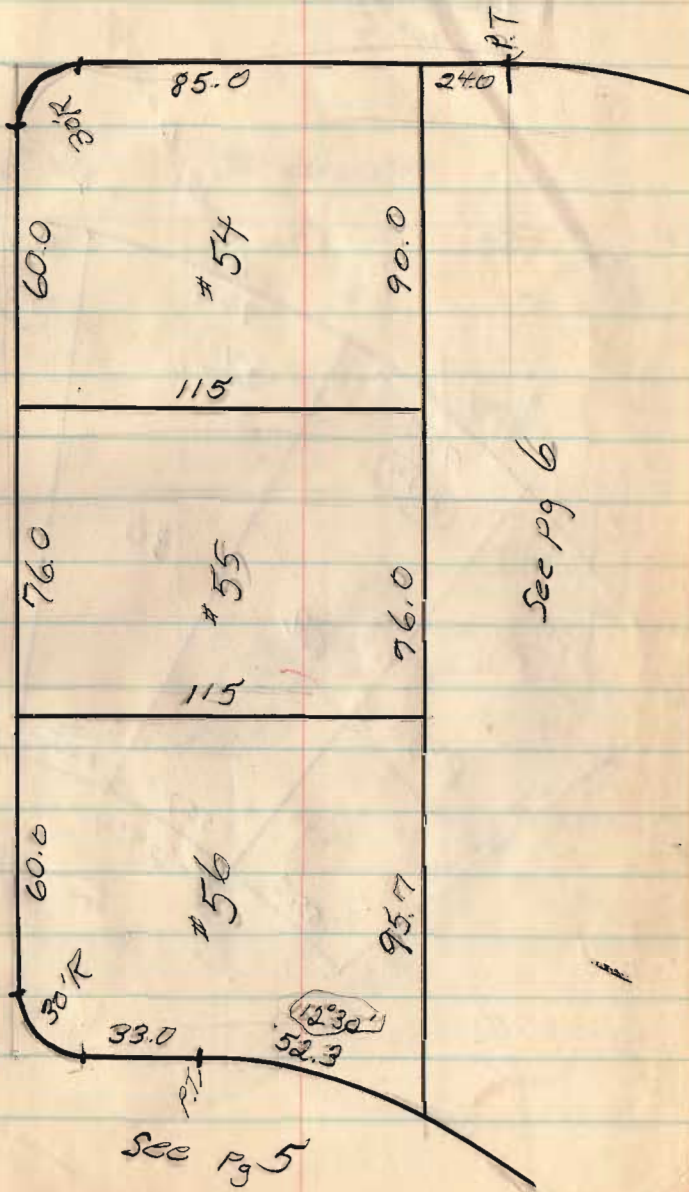 85.0
24.0
P.T
30'R
60.0
# 54
90.0
115
76.0
# 55
76.0
See pg 6
115
60.0
# 56
95.7
30'R
33.0
12°30'
52.3
P.T.
See Pg 5